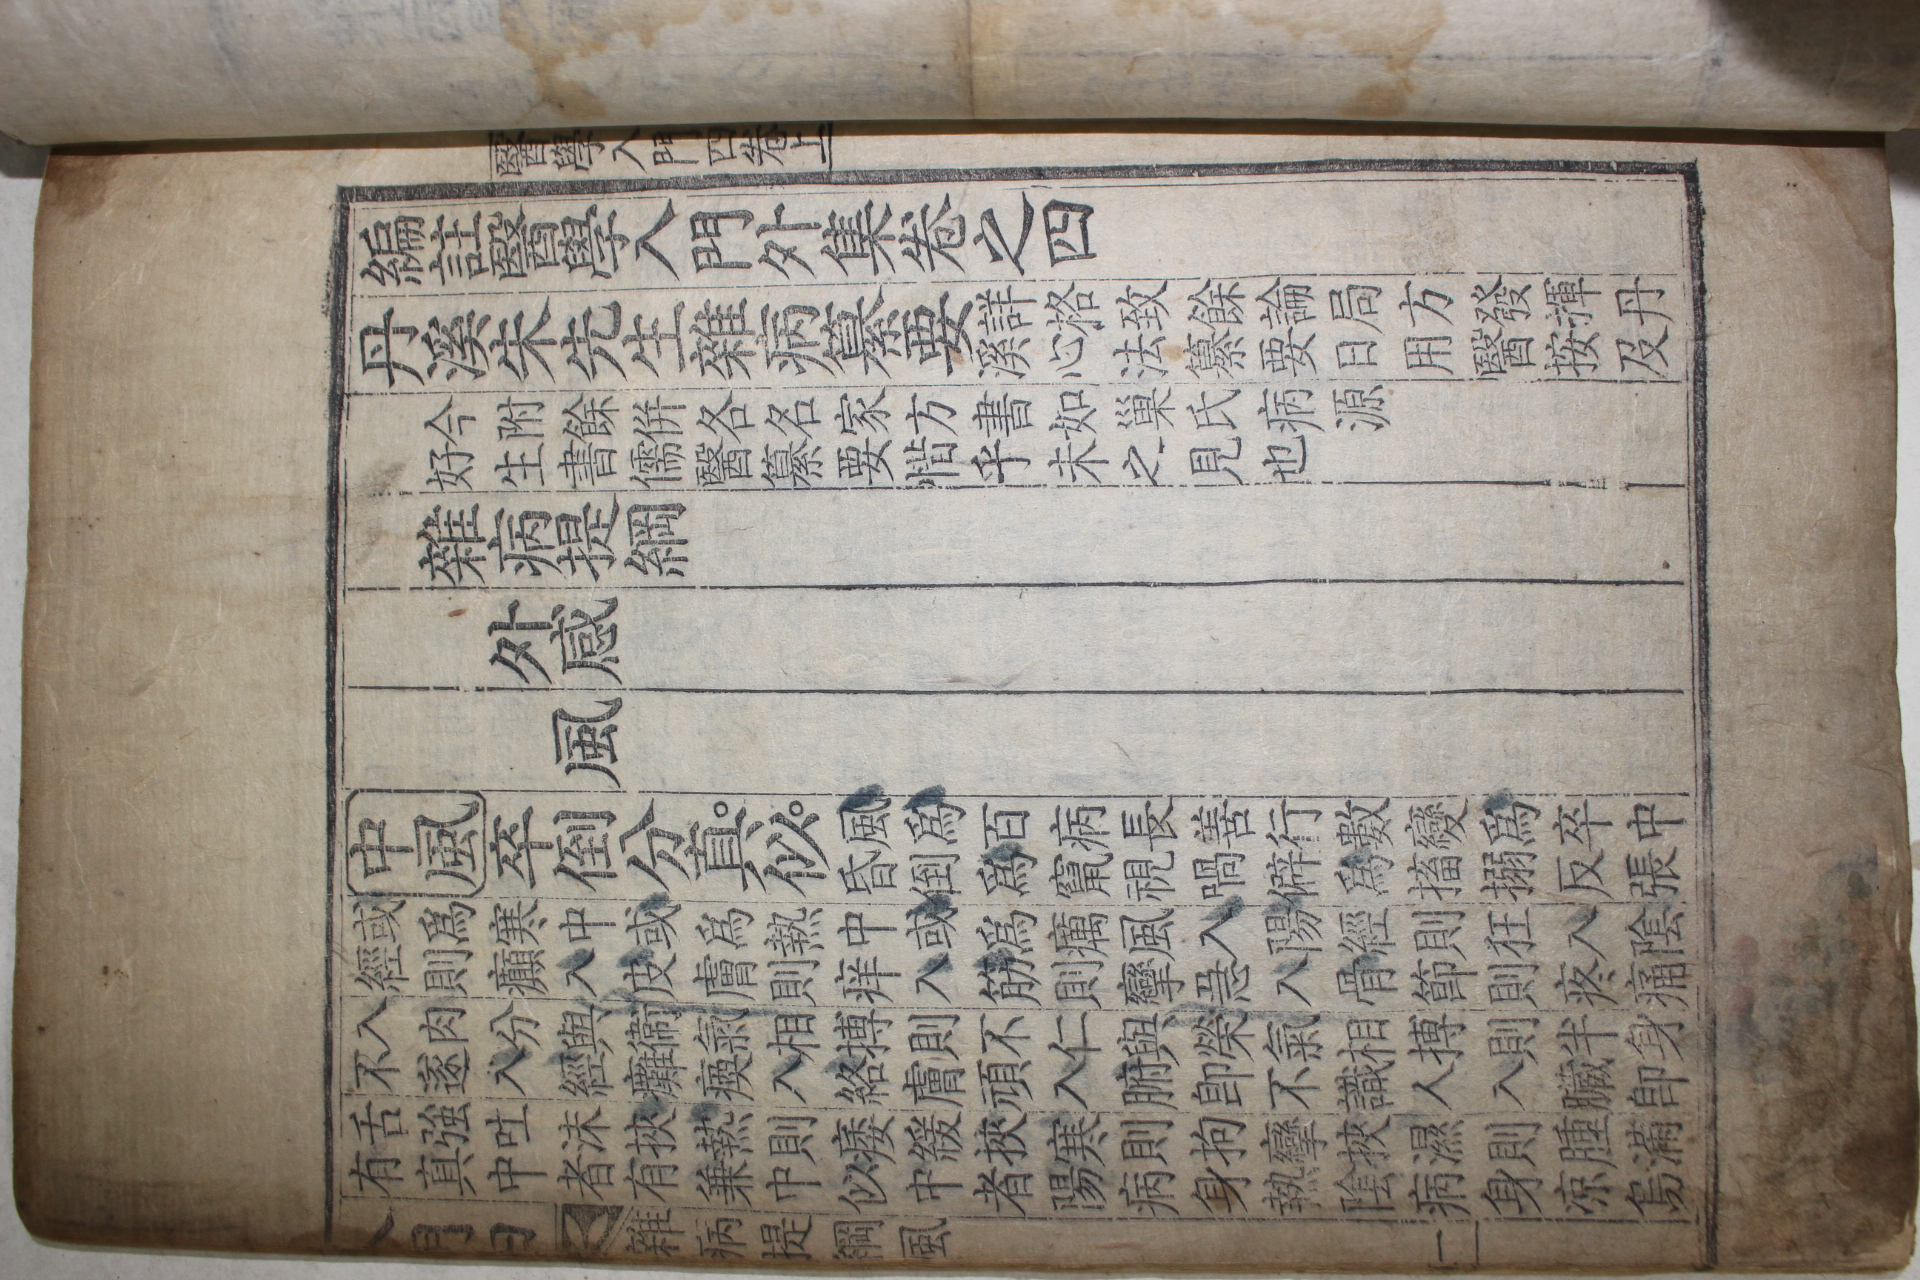 醫學入門四卷上
編註醫學入門外集卷之四
丹溪朱先生雜病纂要
詳格致餘論局方發揮丹
溪心法纂要日用醫按及
今附餘併各名家方書如巢氏病源
好生書儒醫纂要惜乎未之見也
雜病提綱
外感
風
中風卒倒分真似
風爲百病長善行數變爲卒中
昏倒爲竄視喎僻爲搐搦反張
或爲寒中或爲熱中或爲癘風入陽經則狂入陰
經則癲入皮膚則痒入筋則攣急入骨節則疼痛
入肉分與衛氣相搏則不仁與榮氣相搏則半身
不遂入經癱瘓入絡膚頑入腑卽不識人入臟卽
舌強吐沫挾熱則痿緩挾寒則拘攣挾濕則腫滿
有真中者有兼中似中者陽病身熱陰病身凉烏
入門四
雜病提綱風
一